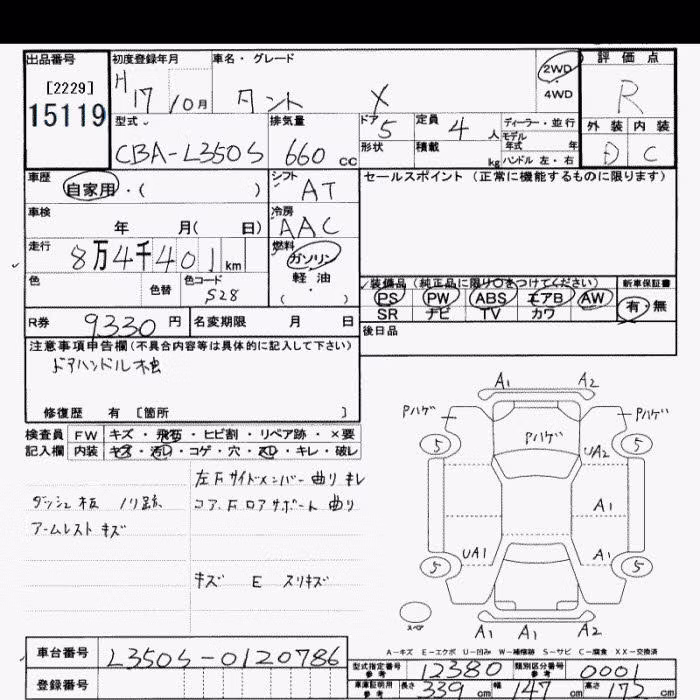 出品番号
[2229]
15119
初度登録年月
H17 10月
車名・グレード
タント X
2WD
・
4WD
評価点
R
外装 内装
D C
型式
CBA-L350S
排気量
660 cc
ドア 5
定員 4 人
形状
積載 kg
ディーラー・並行
モデル年式 年
ハンドル 左・右
車歴
自家用・( )
シフト
AT
セールスポイント (正常に機能するものに限ります)
車検
年 月( 日)
冷房
AAC
走行
8万4千401km
燃料
ガソリン
軽・油
( ・ )
色
色替
色コード
S28
装備品 (純正品に限り○をつけてください)
新車保証書
PS PW ABS エアB AW
有・無
SR ナビ TV カワ
後日品
R券 9330円
名変期限 月 日
注意事項申告欄(不具合内容等は具体的に記入して下さい)
修復歴 有 [箇所 ]
検査員 FW キズ・飛石・ヒビ割・リペア跡・×要
記入欄 内装 キズ・汚レ・コゲ・穴・スレ・キレ・破レ
左Fサイドメンバー曲リキレ
コア.Fロアサポート曲リ
ダッシュ板 ノリ跡
アームレスト キズ
キズ E スリキズ
A1 A2
Pハゲ Pハゲ Pハゲ
5 5
UA2
A1
UA1 A1
5 5
スペア
A1 A1 A2
A－キズ E－エクボ U－凹み W－補修跡 S－サビ C－腐食 XX－交換済
車台番号 L350S-0120786
登録番号
型式指定番号 参考 12380
類別区分番号 参考 0001
車庫証明用 参考 長さ 339cm 幅 147cm 高さ 172cm